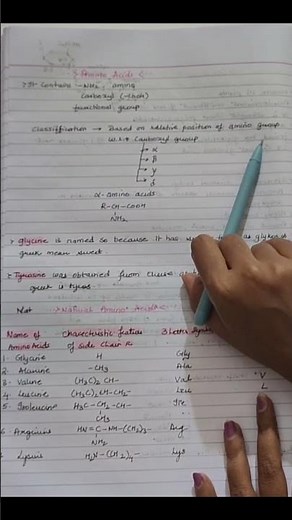 > Amino Acids <
> It contains -NH2, amino
carboxyl (-COOH)
functional group
Classification → Based on relative position of amino group
w.r.t carboxyl group
→ α
→ β
→ γ
→ δ
α-amino acids
R-CH-COOH
NH2
> glycine is named so because it has
greek mean sweet
> Tyrosine was obtained from cheese
greek is tyros
> Natural Amino Acids <
Name of Characteristic feature 3 letter
Amino Acids of side chain R
1. Glycine H Gly
2. Alanine -CH3 Ala
3. Valine (H3C)2 CH- Val V
4. Leucine (H3C)2CH-CH2- Leu L
5. Isoleucine H3C-CH2-CH- Ile
CH3
6. Arginine HN=C-NH-(CH2)3- Arg
NH2
Lysine H2N-(CH2)4- Lys